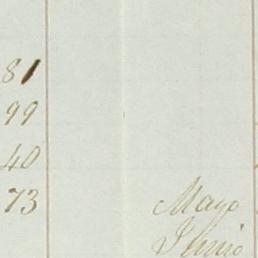 81
99
40
73 Mayo
Junio